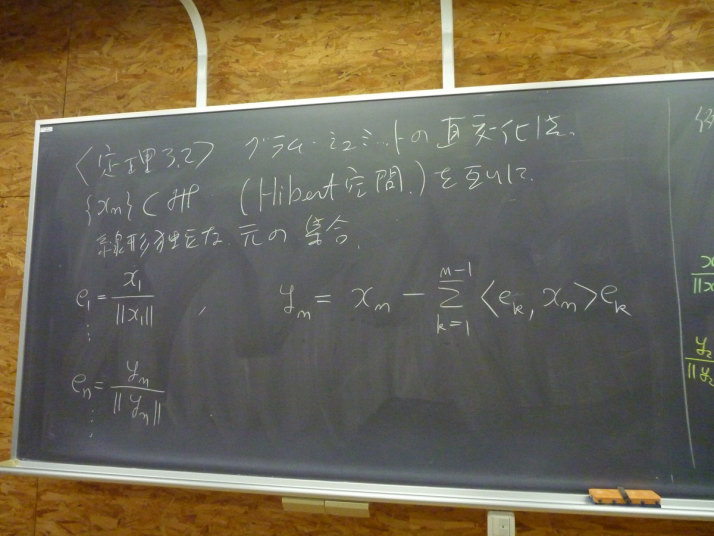 <定理3.2> グラム・シュミットの直交化法.
{xn} ⊂ ℋ (Hilbert空間.)を互いに.
線形独立な元の集合.
e1 = x1 / ||x1|| , yn = xn − Σ_{k=1}^{n−1} <ek, xn>ek
⋮
en = yn / ||yn||
⋮
例
||x
y2
||y2